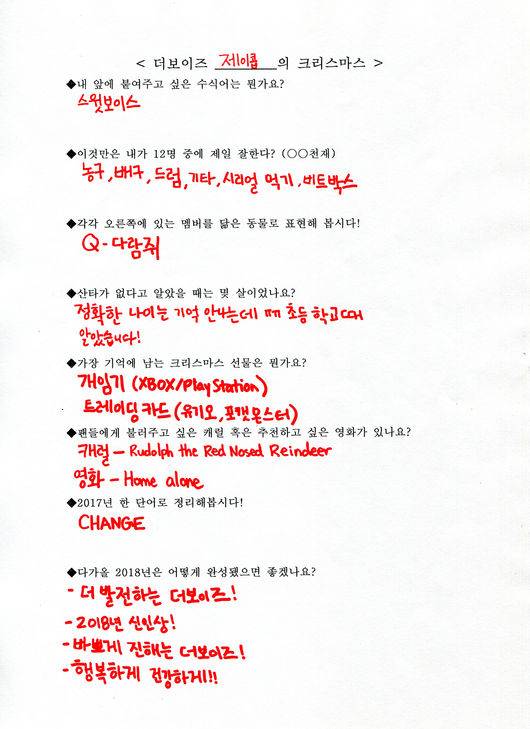 < 더보이즈 제이콥 의 크리스마스 >
◆내 앞에 붙여주고 싶은 수식어는 뭔가요?
스윗보이스
◆이것만은 내가 12명 중에 제일 잘한다? (○○천재)
농구, 배구, 드럼, 기타, 시리얼 먹기, 비트박스
◆각각 오른쪽에 있는 멤버를 닮은 동물로 표현해 봅시다!
Q - 다람쥐
◆산타가 없다고 알았을 때는 몇 살이었나요?
정확한 나이는 기억 안나는데 ㅠㅠ 초등학교때
알았습니다!
◆가장 기억에 남는 크리스마스 선물은 뭔가요?
게임기 (XBOX/PlayStation)
트레이딩 카드 (유기오, 포캣몬스터)
◆팬들에게 불러주고 싶은 캐럴 혹은 추천하고 싶은 영화가 있나요?
캐럴 - Rudolph the Red Nosed Reindeer
영화 - Home alone
◆2017년 한 단어로 정리해봅시다!
CHANGE
◆다가올 2018년은 어떻게 완성됐으면 좋겠나요?
- 더 발전하는 더보이즈!
- 2018년 신인상!
- 바쁘게 진행하는 더보이즈!
- 행복하게 건강하게!!